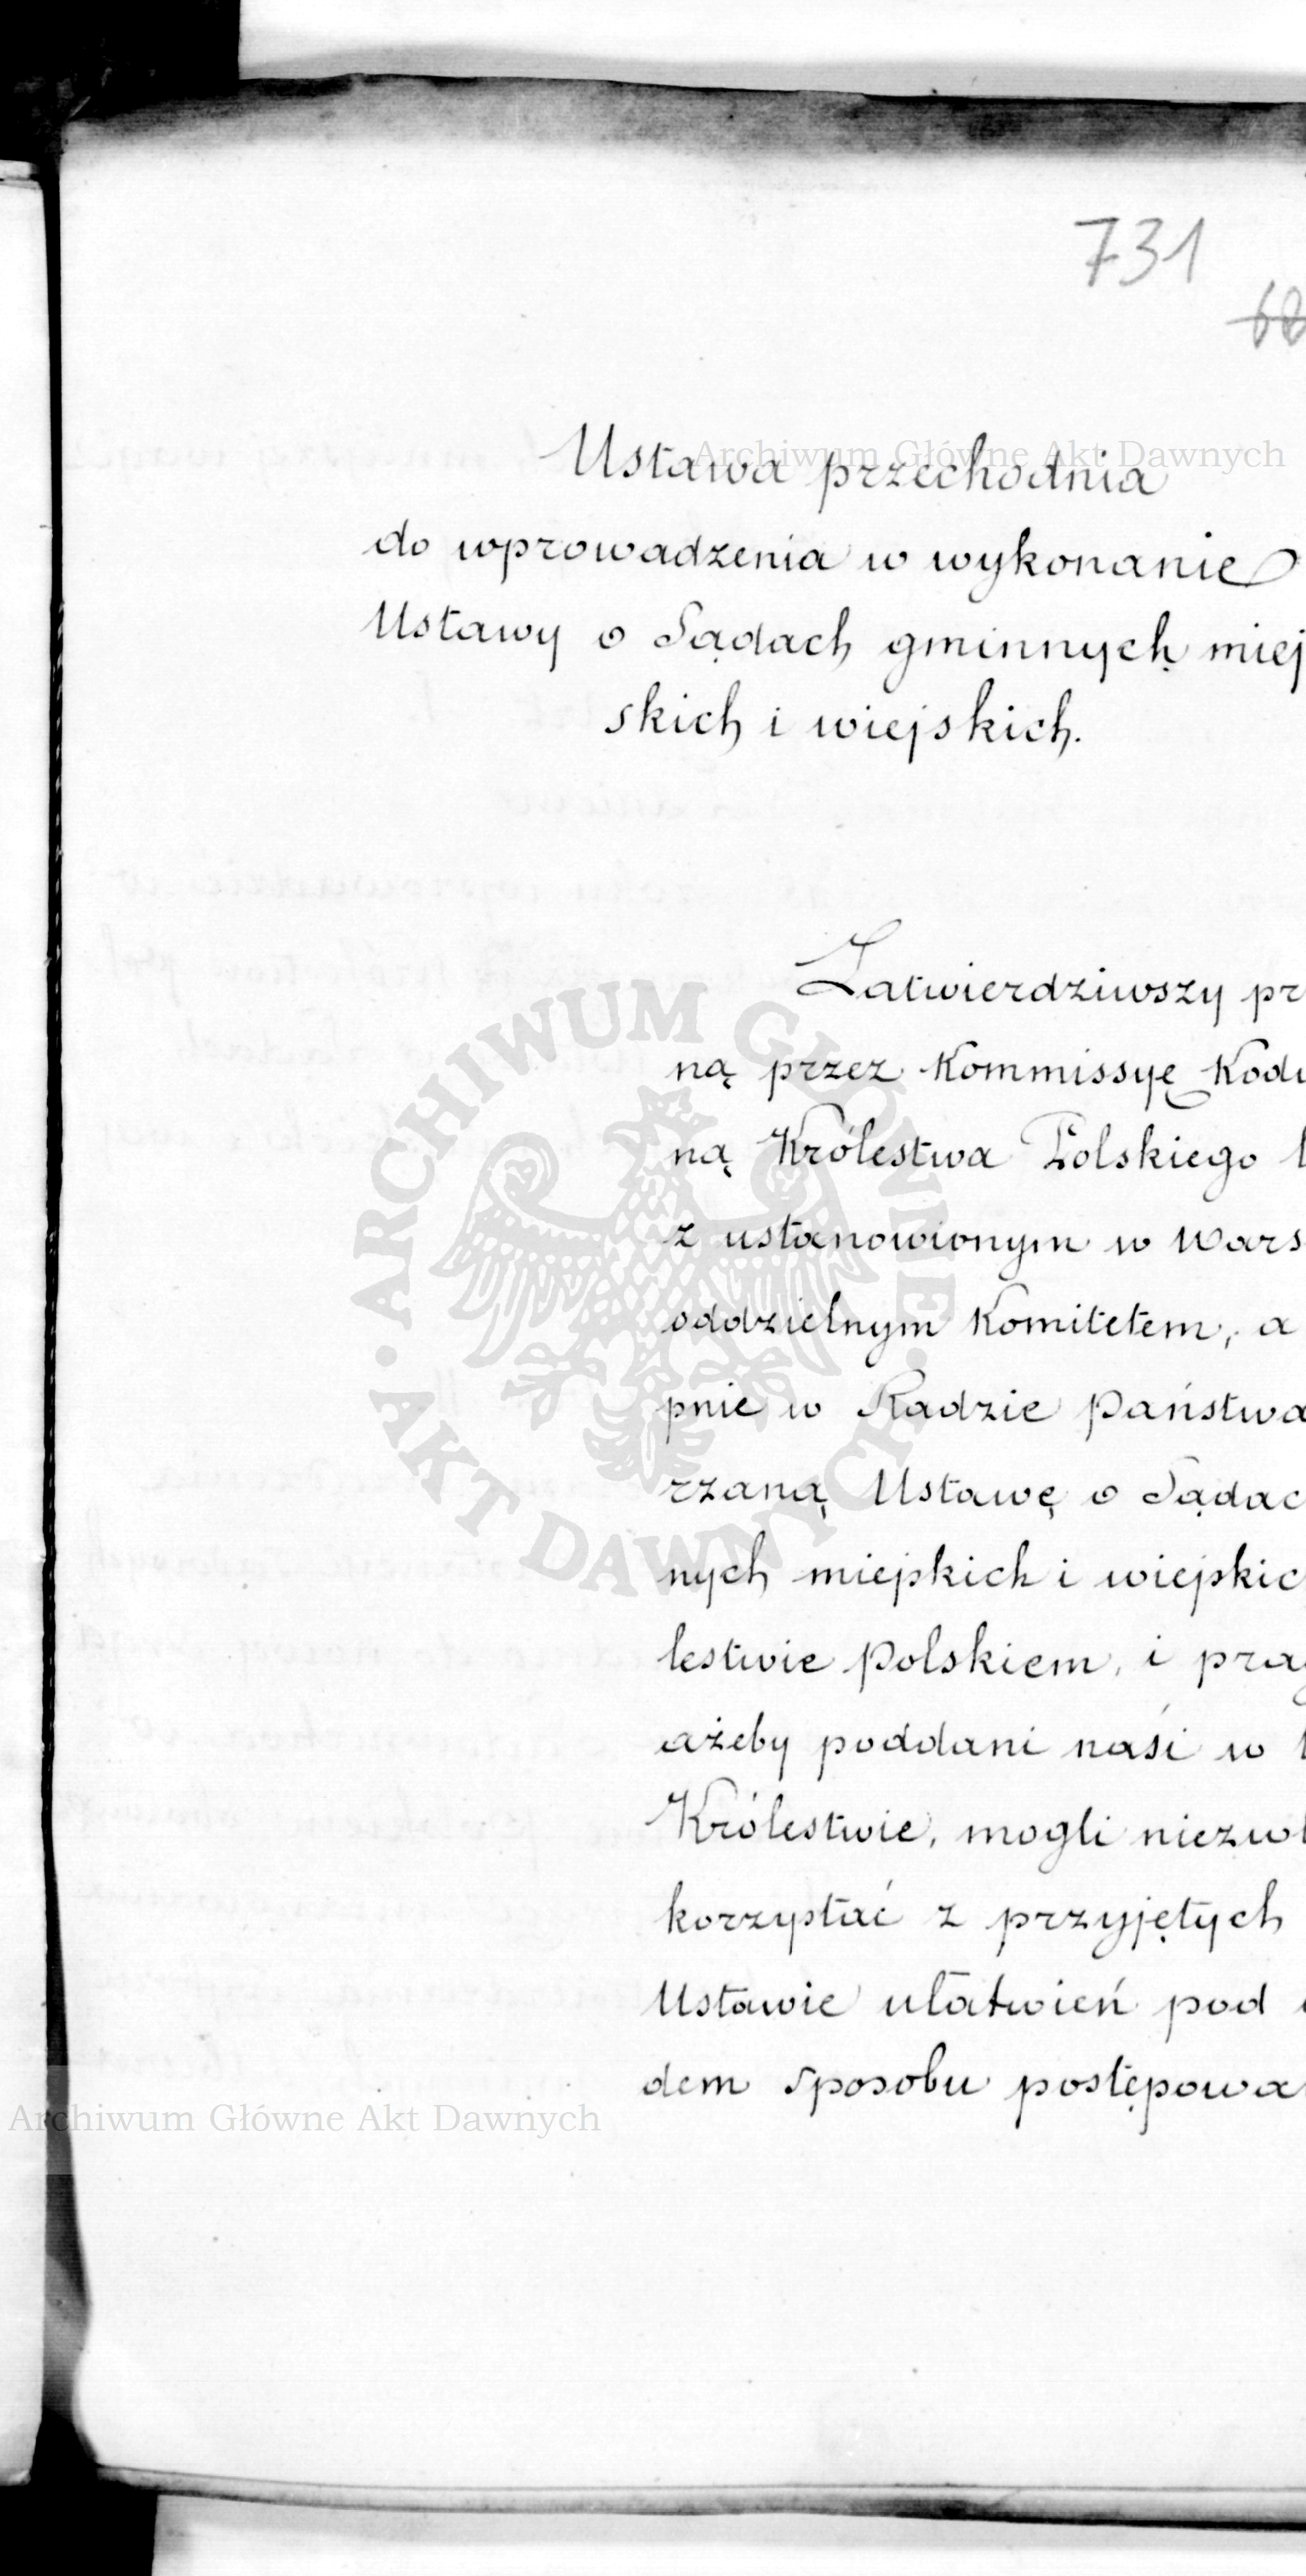 731
Archiwum Główne Akt Dawnych
Ustawa przechodnia
do wprowadzenia w wykonanie
Ustawy o Sądach gminnych miej
skich i wiejskich.
Zatwierdziwszy pr
ną przez Kommissyę Kody
ną Królestwa Polskiego
z ustanowionym w Wars
oddzielnym Komitetem, a
pnie w Radzie Państwa
rzaną Ustawę o Sądac
nych miejskich i wiejskic
lestwie Polskiem, i prag
ażeby poddani naśi w
Królestwie, mogli niezwł
korzystać z przyjętych
Ustawie ułatwień pod
dem sposobu postępowa
Archiwum Główne Akt Dawnych
ARCHIWUM GŁÓWNE
AKT DAWNYCH